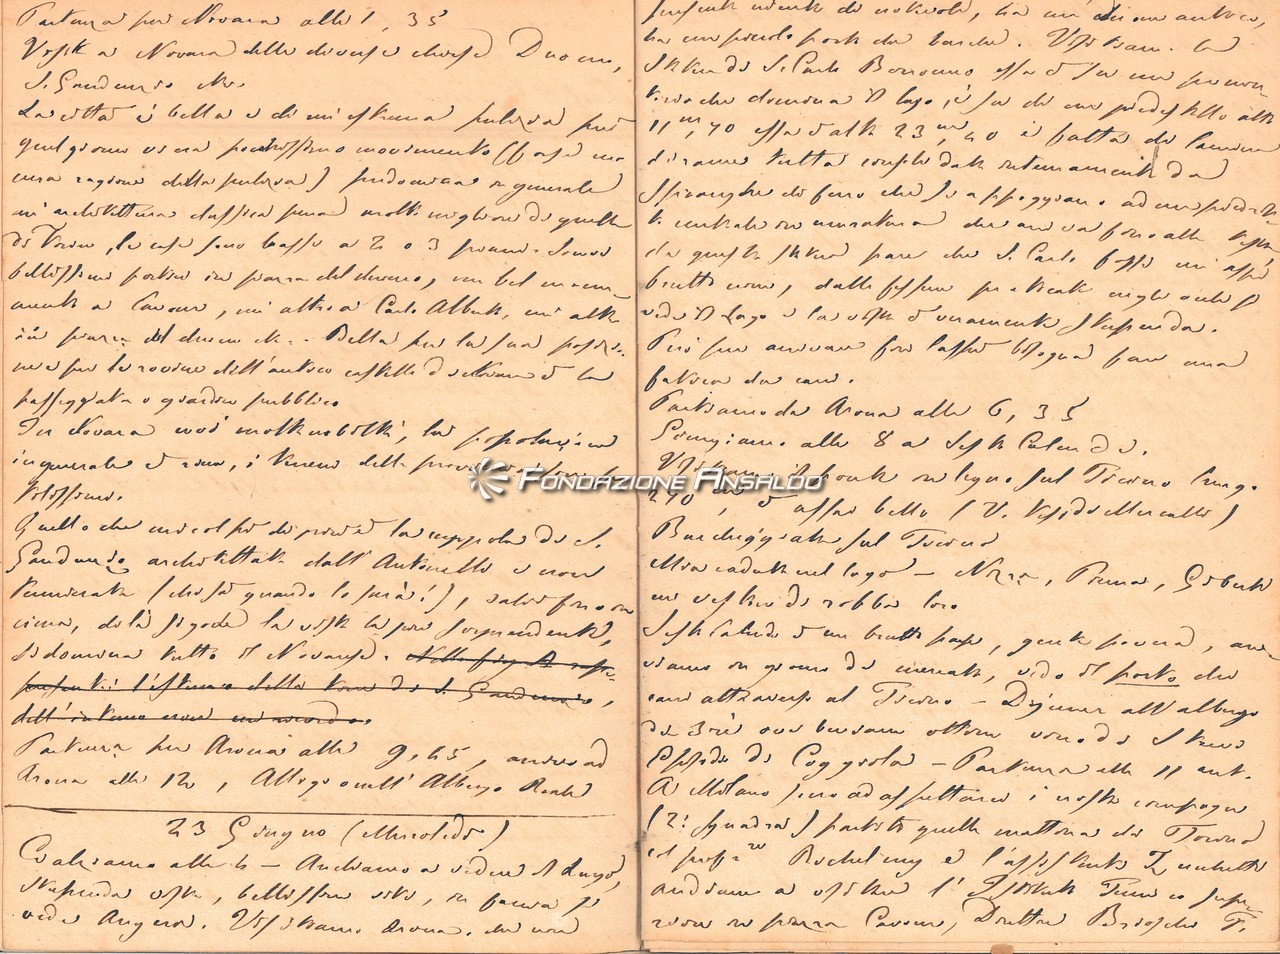 Partenza per Novara alle 1, 35
Visita a Novara delle diverse chiese Duomo,
S. Gaudenzio etc.
La città è bella e di un'estrema pulizia però
quel giorno vi era pochissimo movimento (forse una
mera ragione della pulizia) predomina in generale
un'architettura classica pura molto migliore di quella
di Torino, le case sono basse a 2 o 3 piani. Sonvi
bellissimi portici in piazza del duomo, un bel monu-
mento a Cavour, un altro a Carlo Alberto, un altro
in piazza del duomo etc. Bella per la sua posizio-
ne e per le rovine dell'antico castello di Novara è la
passeggiata o giardino pubblico.
In Novara molta nobiltà, la popolazione
in generale è, i terreni della provincia sono
.
Quello che mi colpì di più è la cuppola di S.
Gaudenzio architettata dall'Antonelli e non
terminata (chi sa quando lo sarà!), salii fino in
cima, di là si gode la vista la più sorprendente,
si domina tutto il Novarese. Nella
l'esterno della torre di S. Gaudenzio,
dell'interno non mi ricordo.
Partenza per Arona alle 9,45, arrivo ad
Arona alle 12, Alloggio nell'Albergo Reale
23 Giugno (Mercoledì)
Ci alziamo alle 4 – Andiamo a vedere il Lago,
stupenda vista, bellissimo sito, in faccia si
vede Angera. Visitiamo Arona, che non
niente di notevole, ha un duomo antico,
ha un piccolo porto da barche. Visitiamo la
statua di S. Carlo Borromeo essa è su un promon-
torio che domina il lago, è su di un piedestallo alto
11 m, 70 essa è alta 23 m, 40 è fatta di lamina
di rame tutta consolidata internamente da
spranghe di ferro che si appoggiano ad un piedritto
centrale in muratura che arriva fino alla testa
da questa statua pare che S. Carlo fosse un assai
brutto uomo, dalle fessure praticate negli occhi si
vede il Lago e la vista è veramente stupenda.
Però per arrivare fino lassù bisogna fare una
fatica da cani.
Partiamo da Arona alle 6, 35
Giungiamo alle 8 a Sesto Calende.
Visitiamo il ponte in legno sul Ticino lungo
270 m, è assai bello (V.)
Barcheggiata sul Ticino
Mia caduta nel lago –
un vestino di robba loro
Sesto Calende è un brutto paese, gente povera, arri-
viamo in giorno di mercato, vedo il porto dei
cani attraverso al Ticino – Déjeuner all'albergo
dei 3 rè ove beviamo ottimo vino di
di Coggiola – Partenza alle 11 ant.
A Milano sono ad aspettarci i nostri compagni
(2a squadra) partiti quella mattina da Torino
col prof.re e l'assistente
andiamo a visitare l'Istituto Tecnico supe-
riore in piazza Cavour, Direttore Brioschi F.
FONDAZIONE ANSALDO